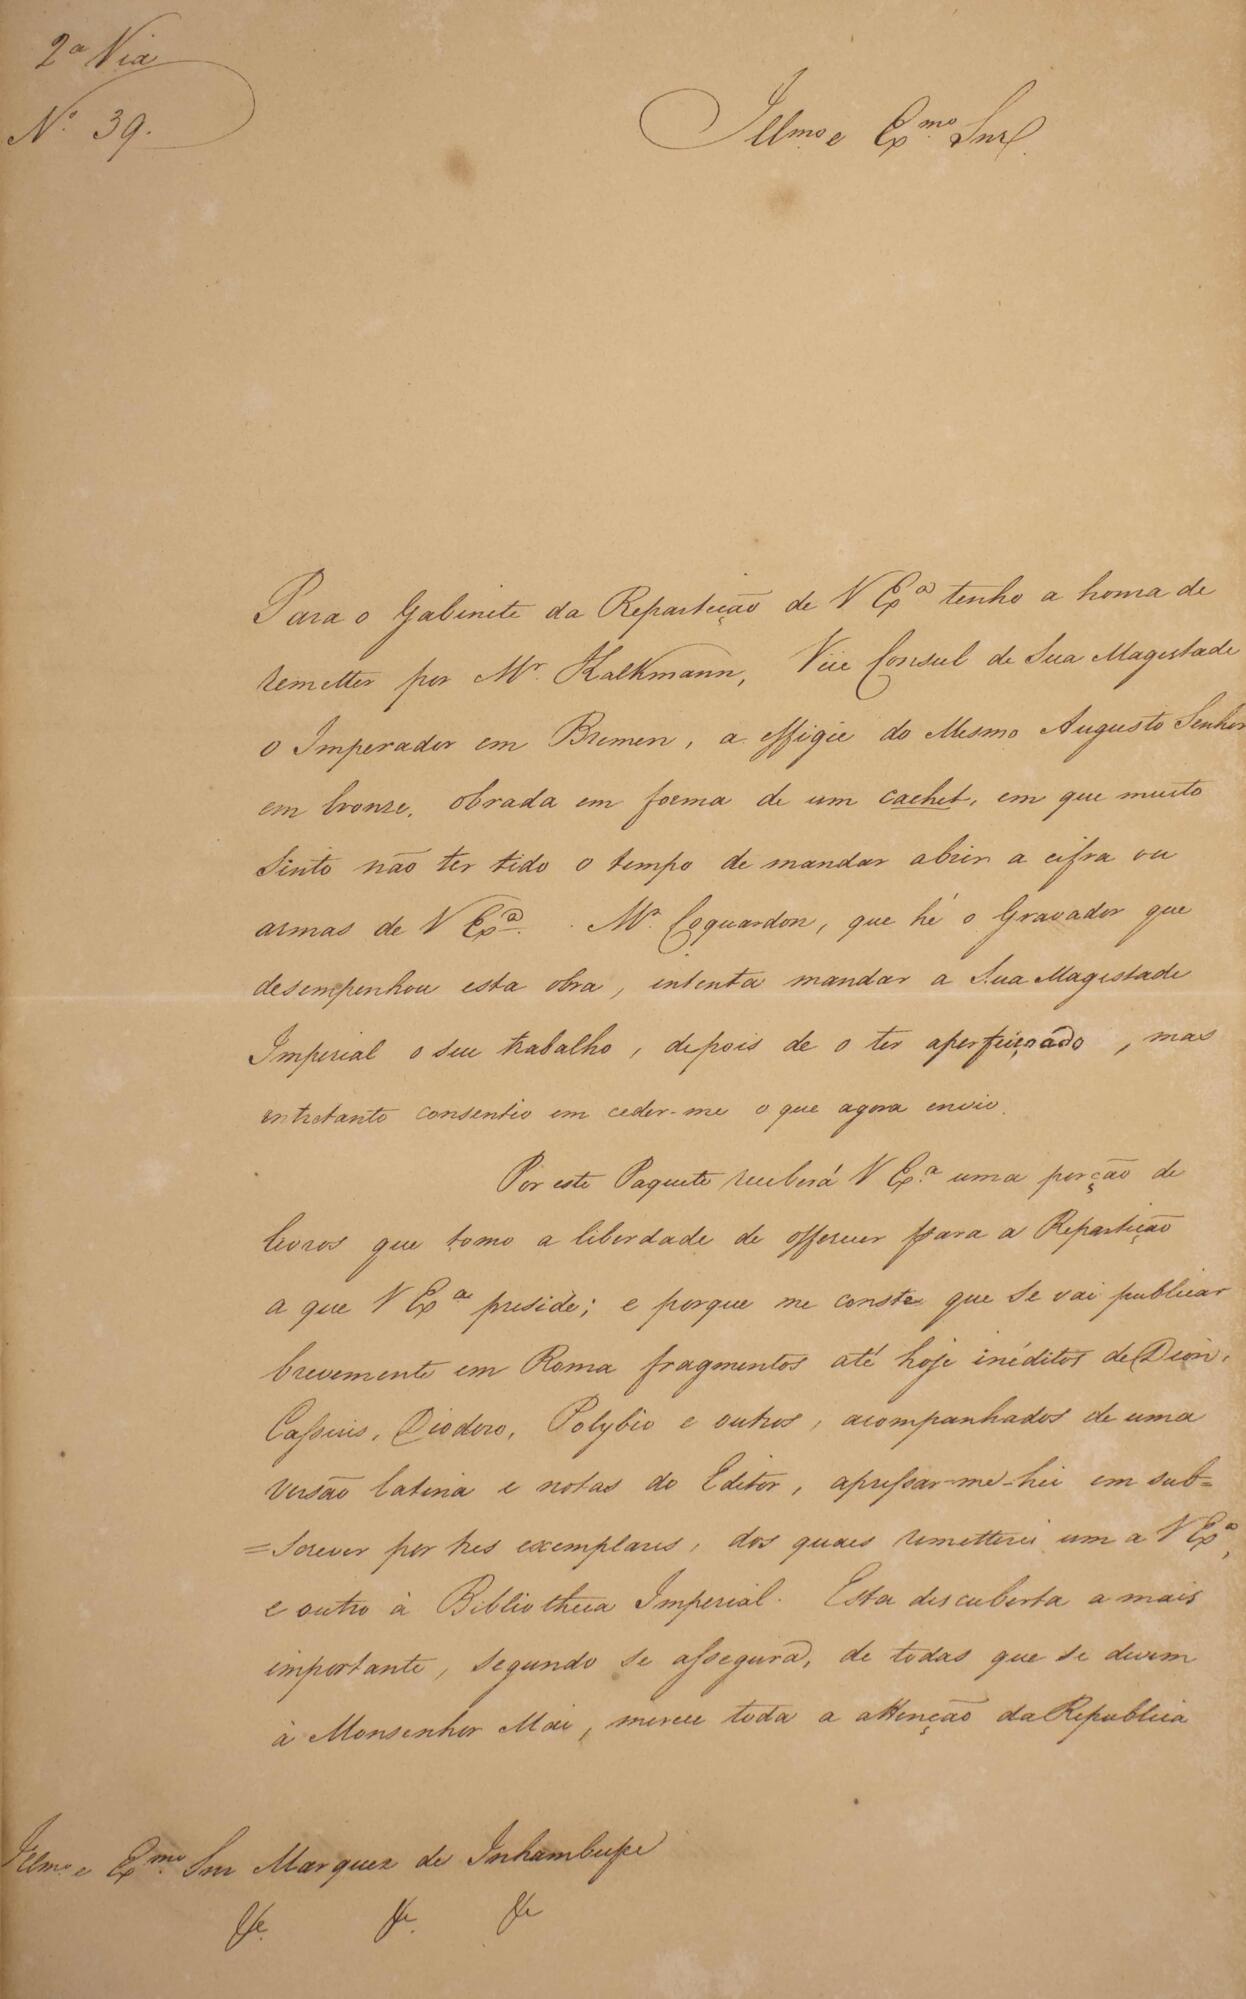 2ª Via
Nº 39.
Illmo e Exmo Snr.
Para o Gabinete da Repartição de V Exª tenho a honra de
remetter por Mr. Kalkmann, Vice Consul de Sua Magestade
o Imperador em Bremen, a effigie do Mesmo Augusto Senhor
em bronze, obrada em forma de um cachet, em que muito
sinto não ter tido o tempo de mandar abrir a cifra ou
armas de V Exª. Mr. Coquardon, que hé o Gravador que
desempenhou esta obra, intenta mandar a Sua Magestade
Imperial o seu trabalho, depois de o ter aperfeiçoado, mas
entretanto consentio em ceder-me o que agora envio.
Por este Paquete receberá V Exª uma porção de
livros que tomo a liberdade de offerecer para a Repartição
a que V Exª preside; e porque me consta que se vai publicar
brevemente em Roma fragmentos até hoje inéditos de Dion,
Cassius, Diodoro, Polybio e outros, acompanhados de uma
versão latina e notas do Editor, apressar-me-hei em sub=
=screver por tres exemplares, dos quaes remetterei um a V Exª,
e outro à Bibliotheca Imperial. Esta descuberta a mais
importante, segundo se assegura, de todas que se devem
à Monsenhor Mai, merece toda a attenção da Republica
Illmo e Exmo Snr Marquez de Inhambupe
&c. &c. &c